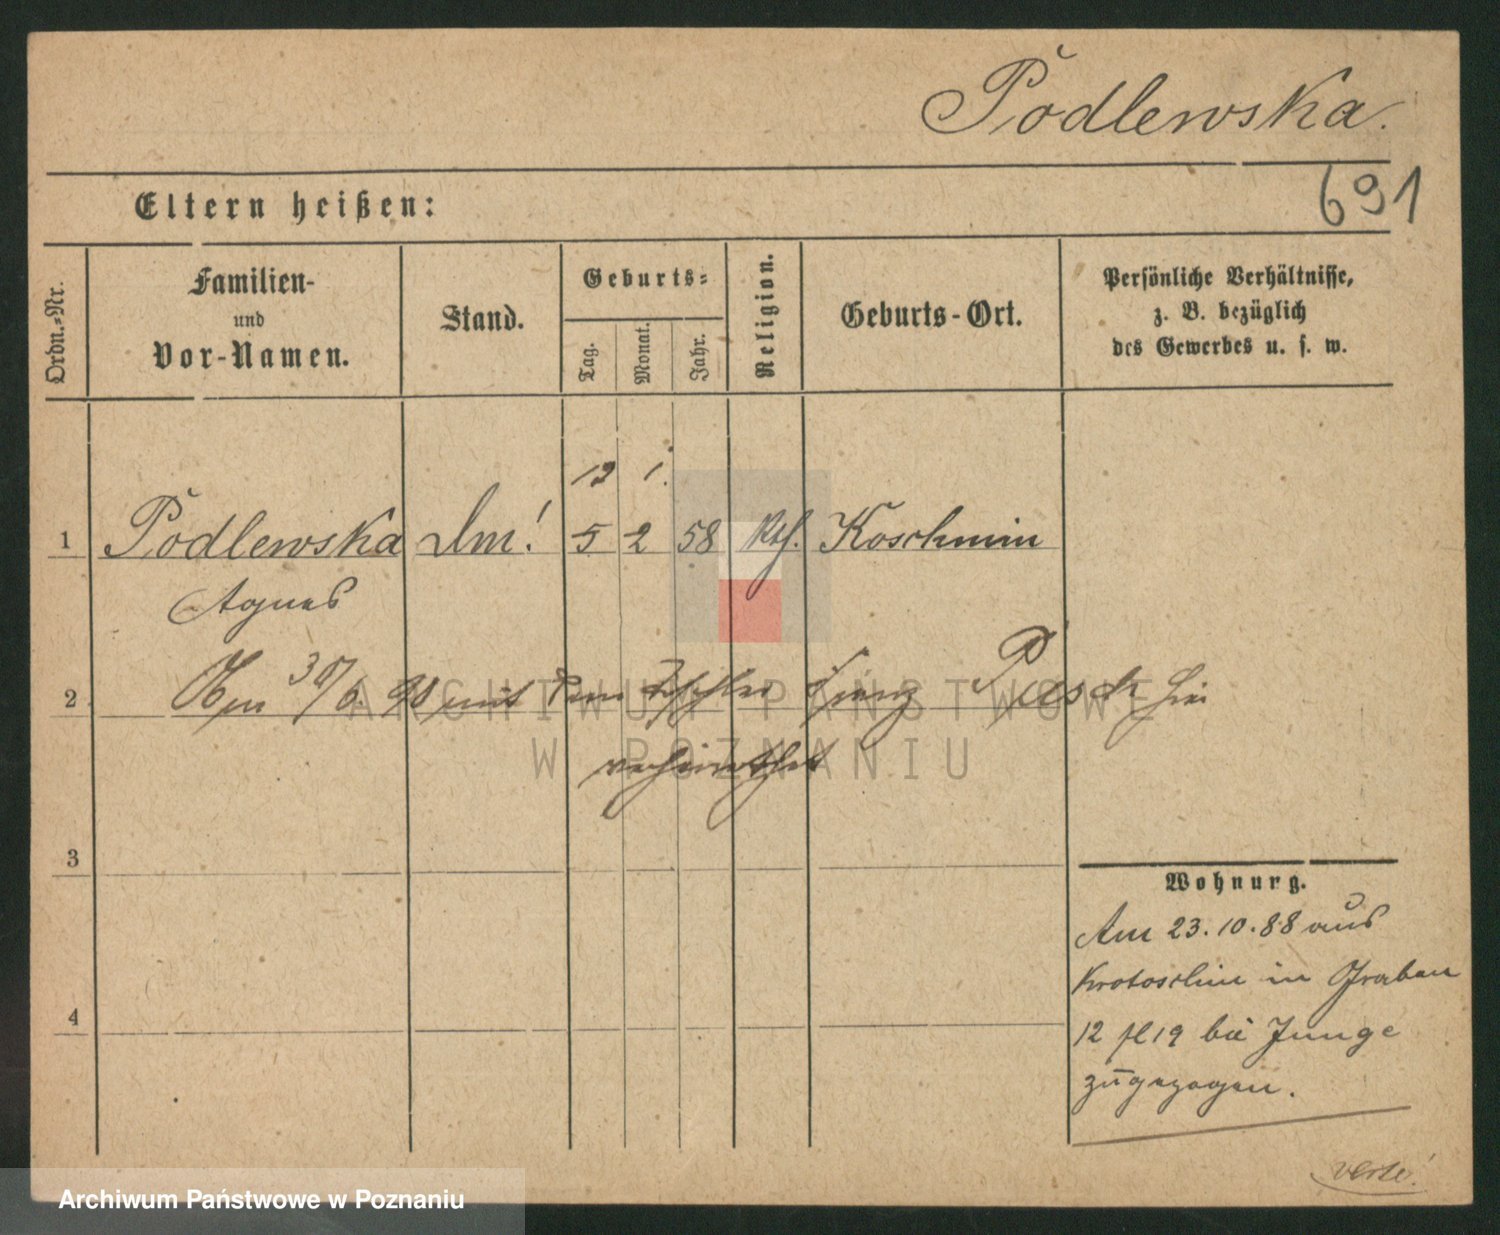 Podlewska.
691
Eltern heißen:
Ordn.-Nr.
Familien-
und
Vor-Namen.
Stand.
Geburts-
Tag.
Monat.
Jahr.
Religion.
Geburts-Ort.
Persönliche Verhältnisse,
z. B. bezüglich
des Gewerbes u. s. w.
12 1.
1 Podlewska 5 2 58 kth. Koschmin
Agnes
2 Am 30/6. 90 mit dem Franz hier
verheirathet
ARCHIWUM PAŃSTWOWE
W POZNANIU
3
Wohnung.
Am 23.10.88 aus
Krotoschin in Graben
4
12 19 bei Junge
zugezogen.
verte!
Archiwum Państwowe w Poznaniu